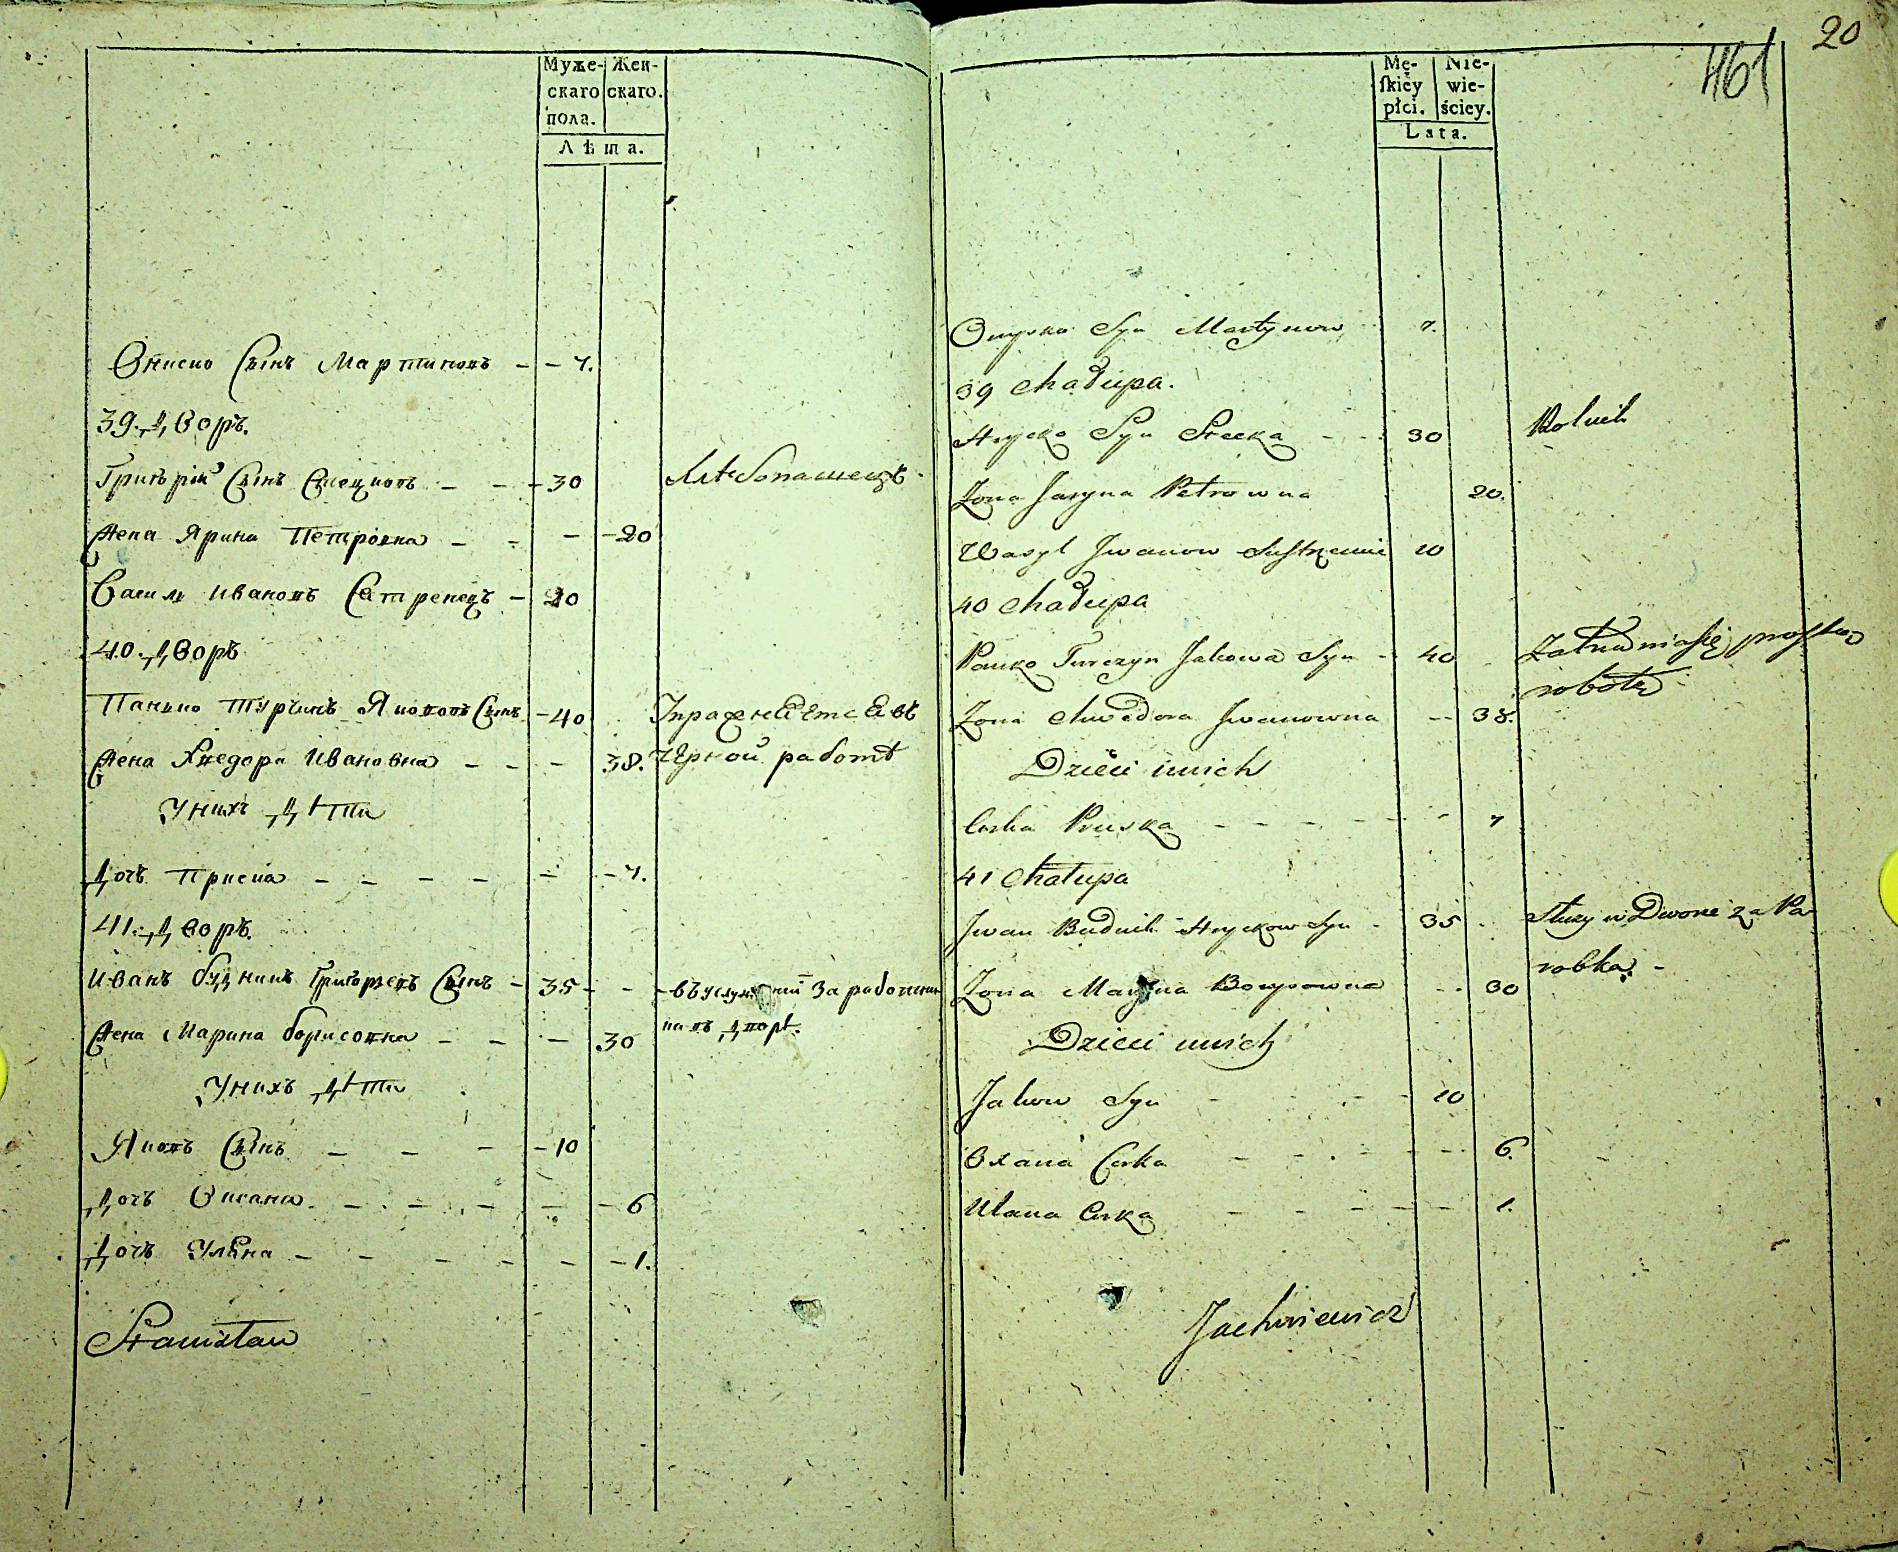 Муже-
скаго
пола.
Жен-
скаго.
Лѣта.
Ониско Сынъ Мартиновъ — — 7.
39. Дворъ.
Григѡрій Сынъ Стецковъ — — 30 Хлѣбопашецъ
Жена Ярина Петровна — — — 20
Василь Ивановъ — 20
40. Дворъ
Панько Турчинъ Якововъ Сынъ — 40 Упражнѧетсѧ въ
Жена Хведора Ивановна — — — 38. Чёрной работѣ
Унихъ Дѣти
Дочъ Приска — — — — — — 7.
41. Дворъ.
Иванъ будникъ Григорѡвъ Сынъ — 35 — — въуслуженіи за работника
Жена Марина борисовна — — — 30 на дворѣ.
Унихъ Дѣти
Яковъ Сынъ — — — — 10
Дочъ Оксана — — — — — — 6
Дочъ Улѧна — — — — — — 1.
Stanisław
20
461
Mę-
skiey
płci.
Nie-
wie-
ściey.
Lata.
Onysko Syn Martynow 7.
39 Chałupa.
Hrycko Syn Stecka — — 30 Rolnik
Żona Jaryna Petrowna 20.
Wasyl Iwanow 20
40 Chałupa
Pańko Turczyn Jakowa Syn — 40 Zatrudnia się prostą
robotą
Żona Chwedora Iwanowna — — 38.
Dzieci u nich
Corka Pryska — — — — — — 7
41 Chałupa
Iwan Budnik Hryckow Syn — 35 Służy w Dworze za Pa
robka. —
Żona Maryna Borysowna — — 30
Dzieci u nich
Jakow Syn — — — — 10
Oxana Corka — — — — — — 6.
Ulana Corka — — — — — — 1.
Jachniewicz